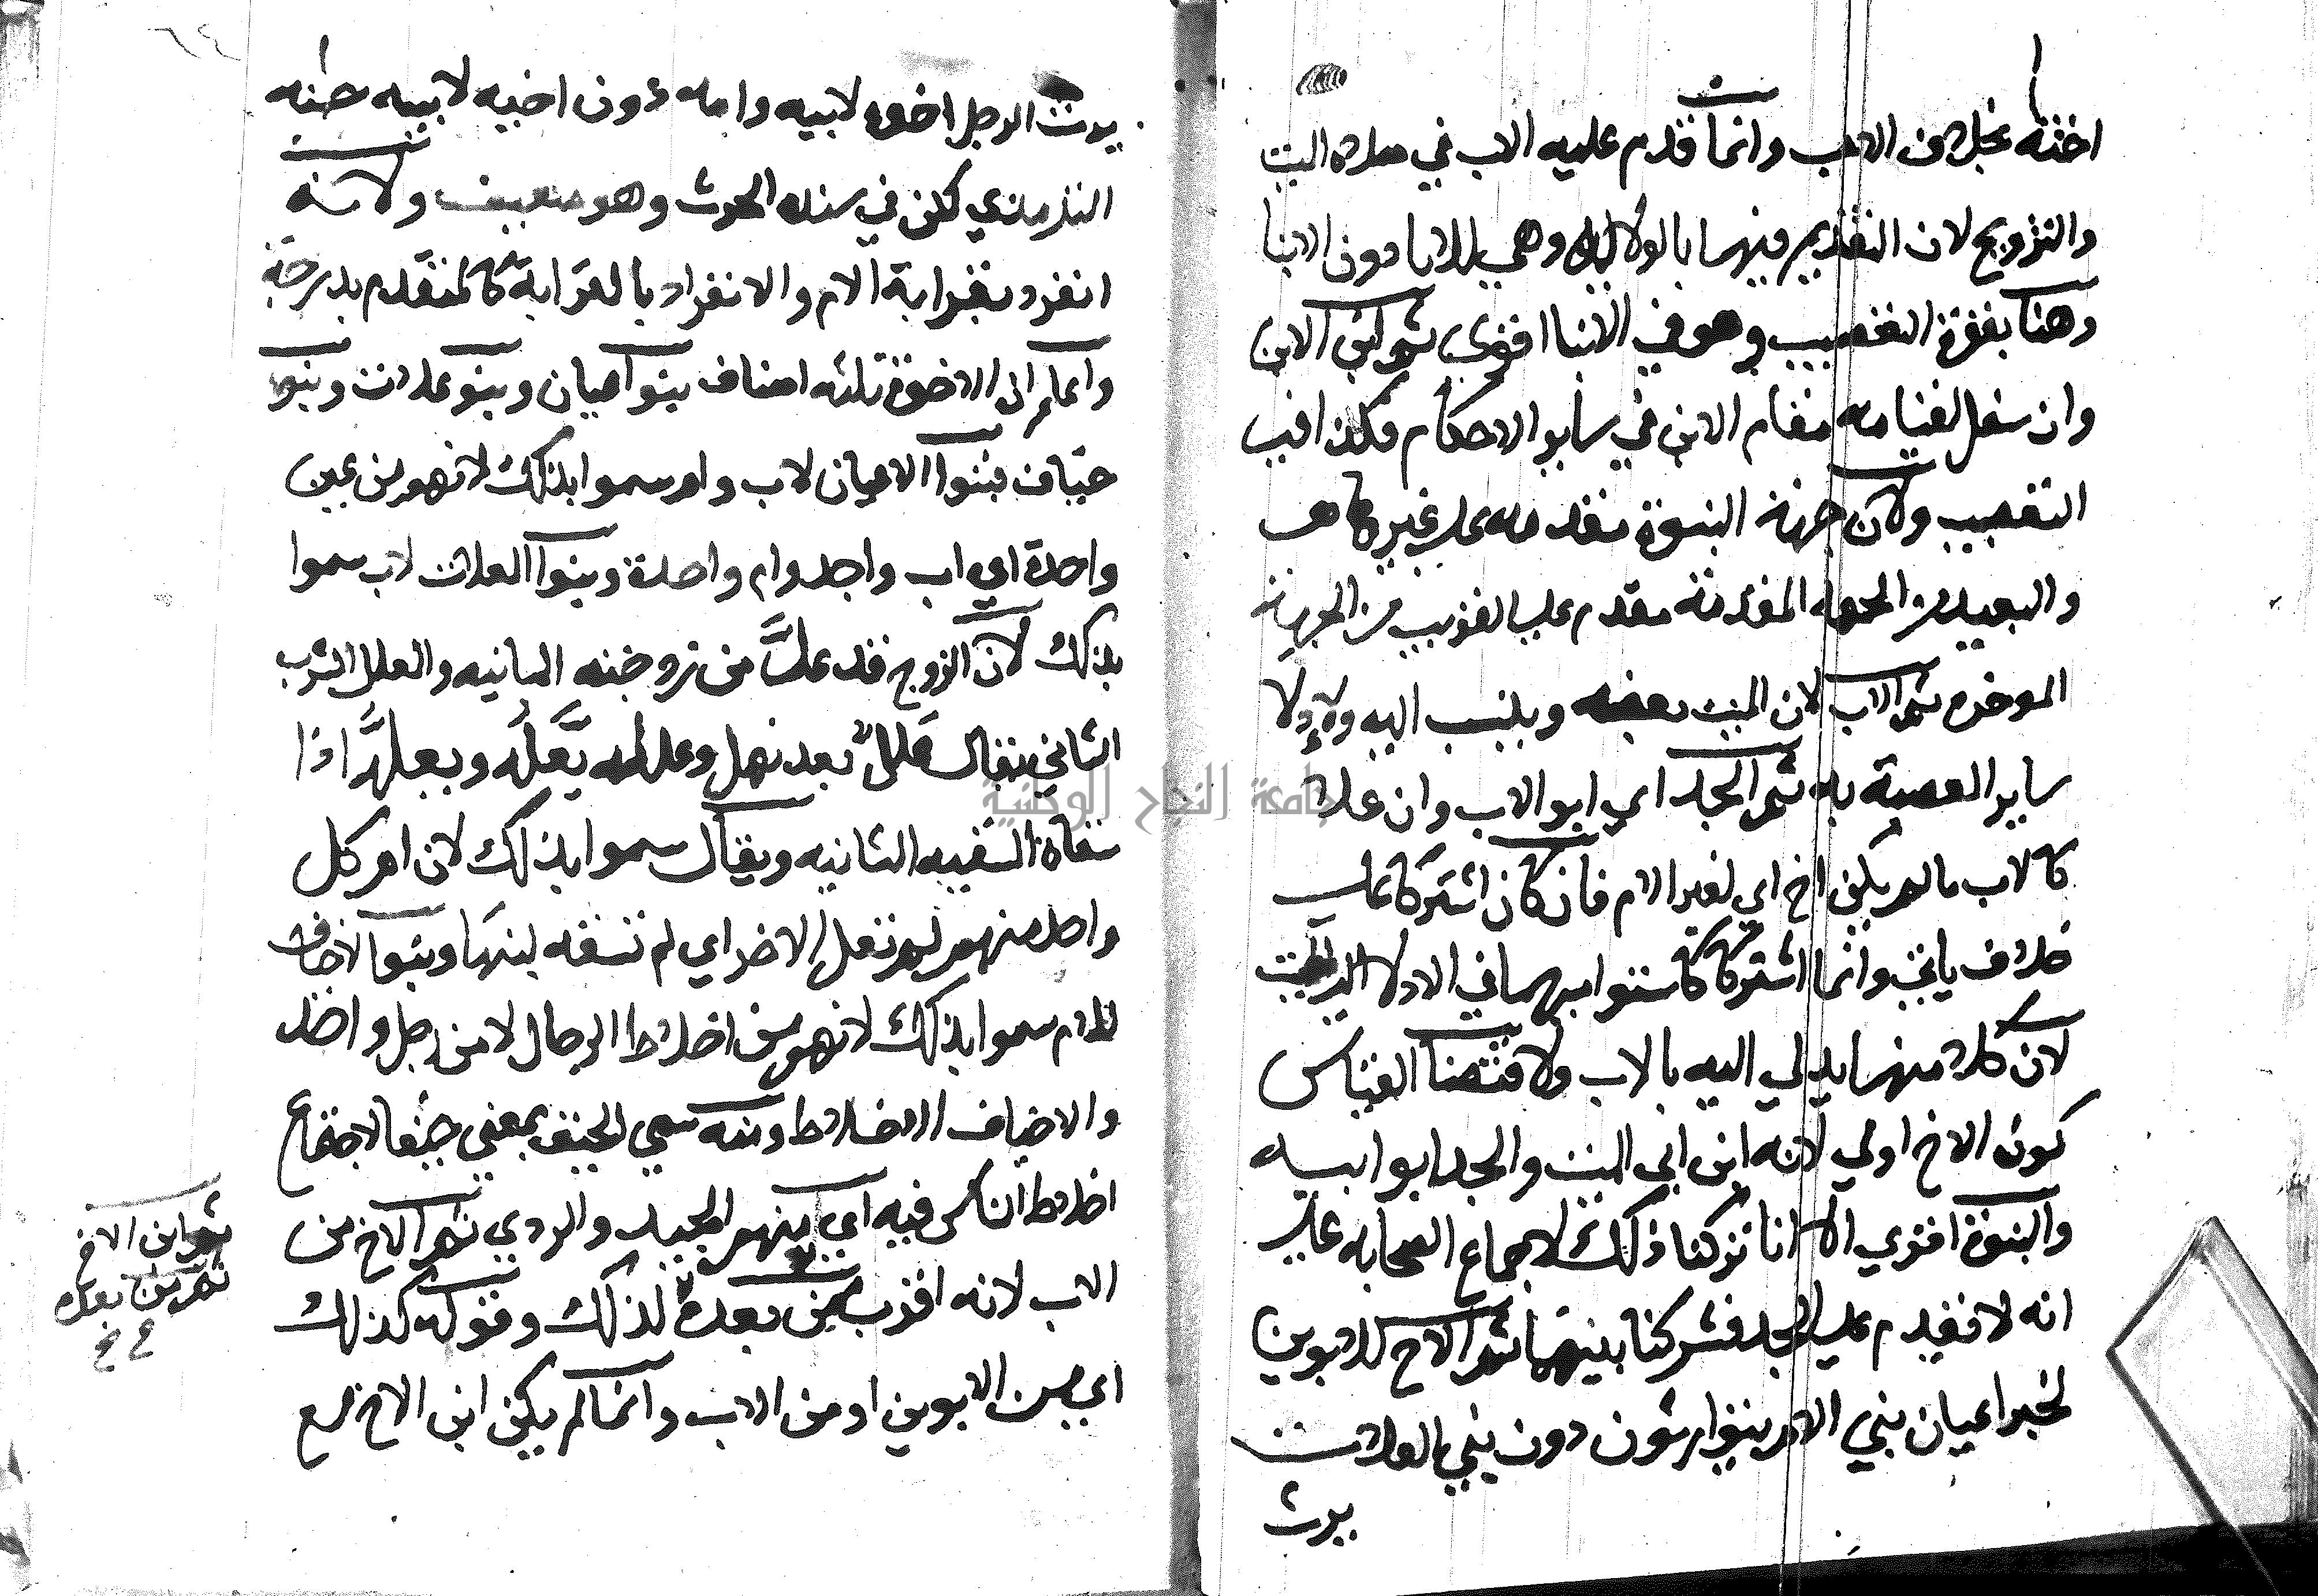 اخته بخلاف الاب وانما قدم عليه الاب في صلاة الميت
والتزويج لان التقديم فيهما بالولاية وهي للابا دون الابنا
وهنا بقوة التعصيب وهو في الابنا اقوى ثم ابن الابن
وان سفل لقيامه مقام الابن في ساير الاحكام فكذا في
التعصيب ولان جهة البنوة مقدمه على غيرها
والبعيد من الجهة المقدمة مقدم على القريب من الجهة
الموخره ثم الاب لان الميت بعضه وينسب اليه ولادلا
ساير العصبة به ثم الجد اي ابو الاب وان علا
كالاب مالم يكن اخ اي لغير الام فان كان اشتركا على
خلاف ياتي وانما اشتركا كاستوايهما في الادلا الى الميت
لان كلا منهما يدلي اليه بالاب ولاقتضا القياس
كون الاخ اولي لانه ابن ابي الميت والجد ابو ابيه
والبنوة اقوي الا انا تركنا ذلك لاجماع الصحابه على
انه لا نقدم على الجد فشركنا بينهما ثم الاخ للابوين
لخبر اعيان بني الام يتوارثون دون بني العلات
يرث
يرث الرجل اخوه لابيه وامه دون اخيه لابيه حسنه
الترمذي لكن في سنده الحرث وهو ضعيف ولانه
انفرد بقرابة الام والانفراد بالقرابة كالتقدم بدرجة
واعلم ان الاخوة ثلثه اصناف بنوا اعيان وبنو علات وبنوا
اخياف فبنوا الاعيان لاب وام سموا بذلك لانهم من عين
واحدة اي اب واحد وام واحدة وبنوا العلات لاب سموا
بذلك لان الزوج قد علّ من زوجته الثانيه والعلل الشرب
الثاني يقال علل بعد نهل وعله يعله ويعله اذا
سقاه السقيه الثانيه ويقال سموا بذلك لان ام كل
واحد منهم لم تعل الاخر اي لم تسقه لبنها وبنوا الاخياف
للام سموا بذلك لانهم من اخلاط الرجال لا من رجل واحد
والاخياف الاخلاط ومنه سمي الخيف بمعنى خيفا لاجتماع
اخلاط الناس فيه اي منهم الجيد والردي ثم الاخ من
الاب لانه اقرب ممن بعده لذلك وقوله كذلك
اي من الابوين او من الاب وانما لم يكن ابن الاخ مع
ثم ابن الاخ
ثم من بعده